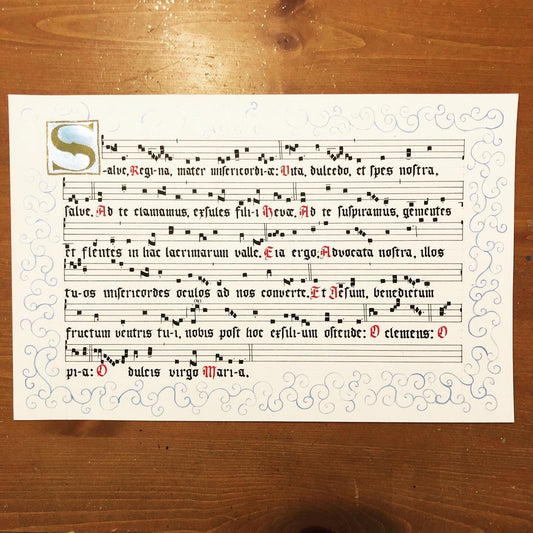 S-alve, Regi-na, mater misericordi-æ: Vita, dulcedo, et spes nostra,
salve. Ad te clamamus, exsules fili-i Hevæ. Ad te suspiramus, gementes
et flentes in hac lacrimarum valle. Eia ergo, Advocata nostra, illos
tu-os misericordes oculos ad nos converte. Et Jesum, benedictum
fructum ventris tu-i, nobis post hoc exsili-um ostende: O clemens: O
pi-a: O dulcis virgo Mari-a.